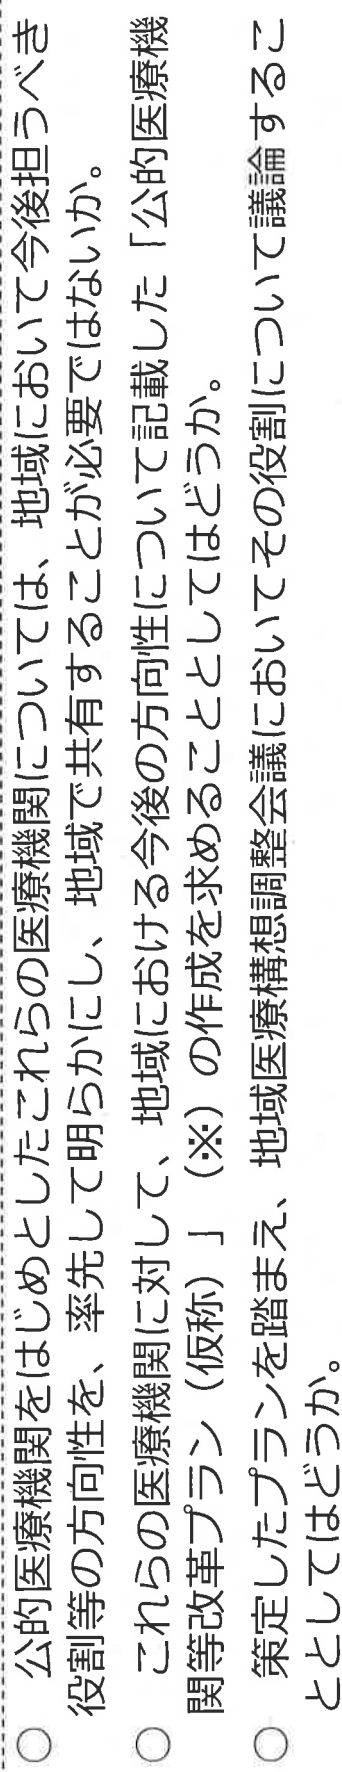 ○　公的医療機関をはじめとしたこれらの医療機関については、地域において今後担うべき
役割等の方向性を、率先して明らかにし、地域で共有することが必要ではないか。
○　これらの医療機関に対して、地域における今後の方向性について記載した「公的医療機
関等改革プラン（仮称）」（※）の作成を求めることとしてはどうか。
○　策定したプランを踏まえ、地域医療構想調整会議においてその役割について議論するこ
ととしてはどうか。